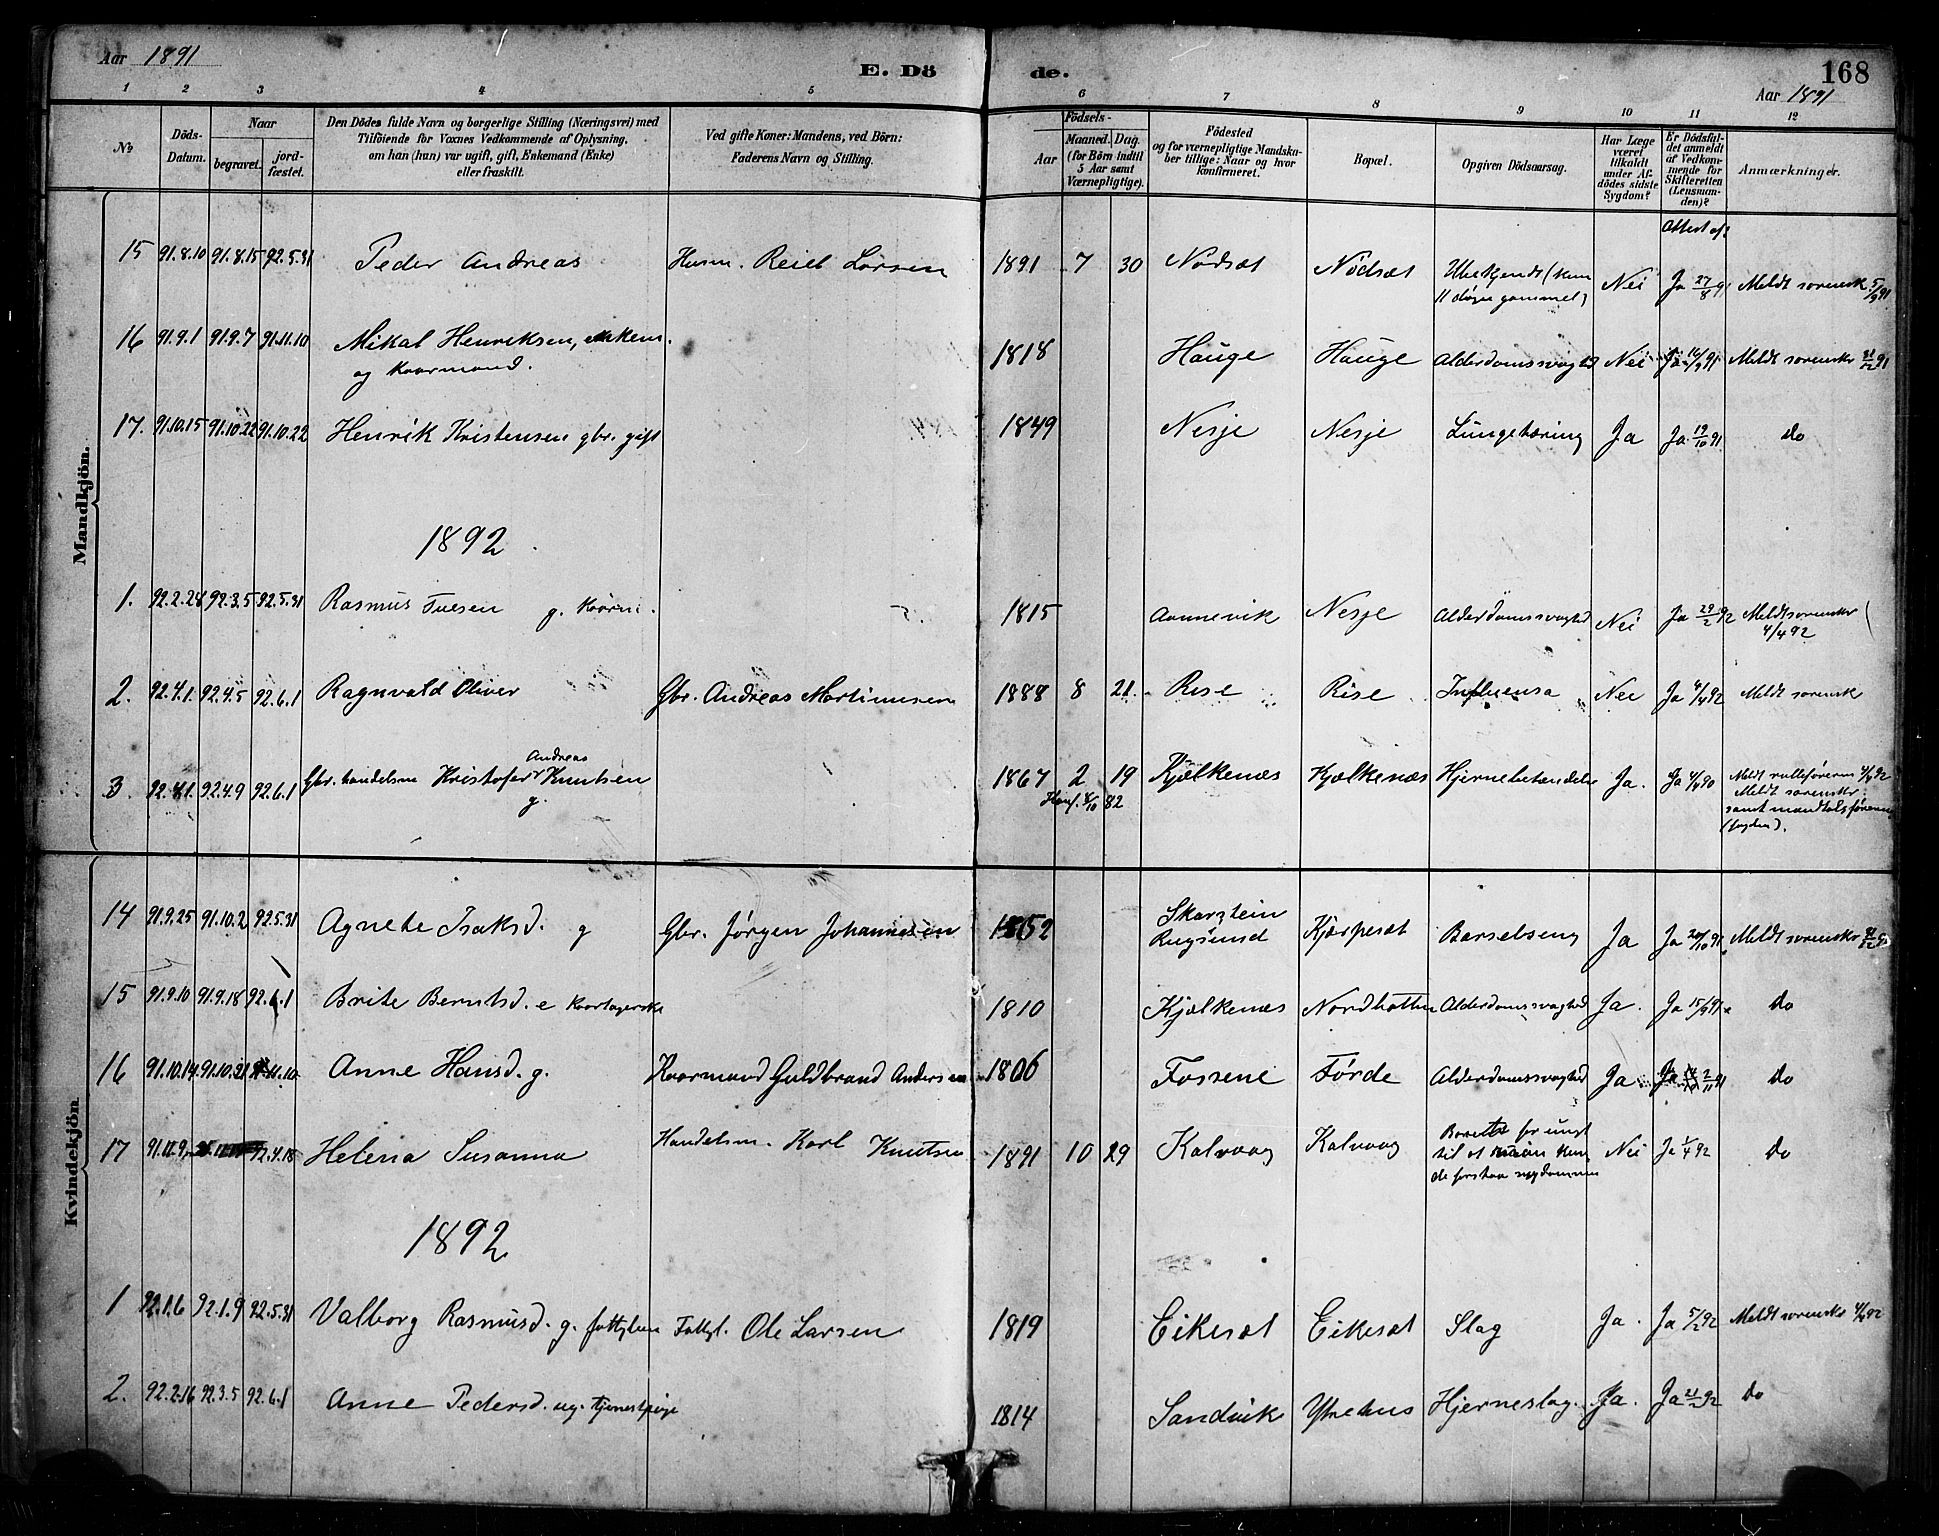 Aar 1891
E. Döde.
168
Aar 1891
1 2 3 4 5 6 7 8 9 10 11 12
No
Döds-Datum.
Naar
begravet.
jord-fæstet.
Den Dödes fulde Navn og borgerlige Stilling (Næringsvei) med
Tilföiende for Voxnes Vedkommende af Oplysning,
om han (hun) var ugift, gift, Enkemand (Enke)
eller fraskilt.
Ved gifte Koner: Mandens, ved Börn:
Faderens Navn og Stilling.
Födsels-
Aar
Maaned. Dag
(for Börn indtil
5 Aar samt
Værnepligtige).
Födested
og for værnepligtige Mandska-
ber tillige: Naar og hvor
konfirmeret.
Bopæl.
Opgiven Dödsaarsag.
Har Læge
været
tilkaldt
under Af-
dödes sidste
Sygdom?
Er Dödsfal-
det anmeldt
af Vedkom-
mende for
Skifteretten
(Lensman-
den)?
Anmærkninger.
Attest af?
Mandkjön.
15 91.8.10 91.8.15 92.5.31 Peder Andreas Husm. Larsen 1891 7 30 Nødsæt Nødsæt Ubekjendt (kun
11 døgn gammel) Nei Ja 27/8 91 Meldt sorensk 5/9 91
16 91.9.1 91.9.7 91.11.10 Mikal Henriksen, enkem.
og kaarmand. 1818 Hauge Hauge Alderdomssvaghed Nei Ja 16/9 91 Meldt sorenskr 91
17. 91.10.15 91.10.22 91.10.22 Henrik Kristensen gbr. gift 1849 Nesje Nesje Lungetæring Ja Ja 19/10 91 do
1892
1. 92.2.28 92.3.5 92.5.31 Rasmus g. Kaarm. 1815 Aannevik Nesje Alderdomssvaghed Nei Ja 29/2 92 Meldt sorenskr
4/4 92
2. 92.4.1. 92.4.5 92.6.1 Ragnvald Oliver Gbr. Andreas Martinusen 1888 8 21. Rise Rise Influensa Nei Ja 4/4 92 Meldt sorensk
Andreas
3. 92.4.1. 92.4.9 92.6.1 Gbr. handelsm Kristofer Knutsen
g. 1867 2 19 Kjelkenæs Kjelkenæs Hjernebetændelse Ja. Ja 4/4 90 Meldt rulleføreren 4/4 92
Konf. 8/10 82
Meldt sorenskr
samt mandtalsføreren
(fogden).
Kvindekjön
14 91.9.25 91.10.2 92.5.31 Agnete Isaksd. g Gbr. Jørgen Johannesen 1852 Skarstein
Rugsund Kjærpesæt Barselseng Ja Ja 20/10 91 Meldt sorenskr
15 91.9.10 91.9.18 92.6.1 Brite Berntsd. e Kaartagerske 1810 Kjelkenæs Nordbotten Alderdomssvaghed Ja. Ja 15/9 91. do
16 91.10.14 91.10.21 91.11.10 Anne Hansd. g. Kaarmand Guldbrand Andersen 1806 Fossene Førde Alderdomssvaghed Ja Ja 2/11 91 do
17 91.12.9 92.4.18 Helena Susanna Handelsm. Karl Knutsen 1891 10 29 Kalvaag Kalvaag Barnet for ungt
til at kun-
de forstaa sygdommen Nei Ja 1/4 92 do
1892
1 92.1.6 92.1.9 92.5.31 Valborg Rasmusd. g. fattiglem Fattgl. Ole Larsen 1819 Eikesæt Eikesæt Slag Ja. Ja 5/2 92 Meldt sorenskr 4/4 92
2. 92.2.16 92.3.5 92.6.1 Anne Pedersd. ug. tjenestpige 1814 Sandvik Ytrehus Hjerneslag. Ja. Ja 21/2 92 do